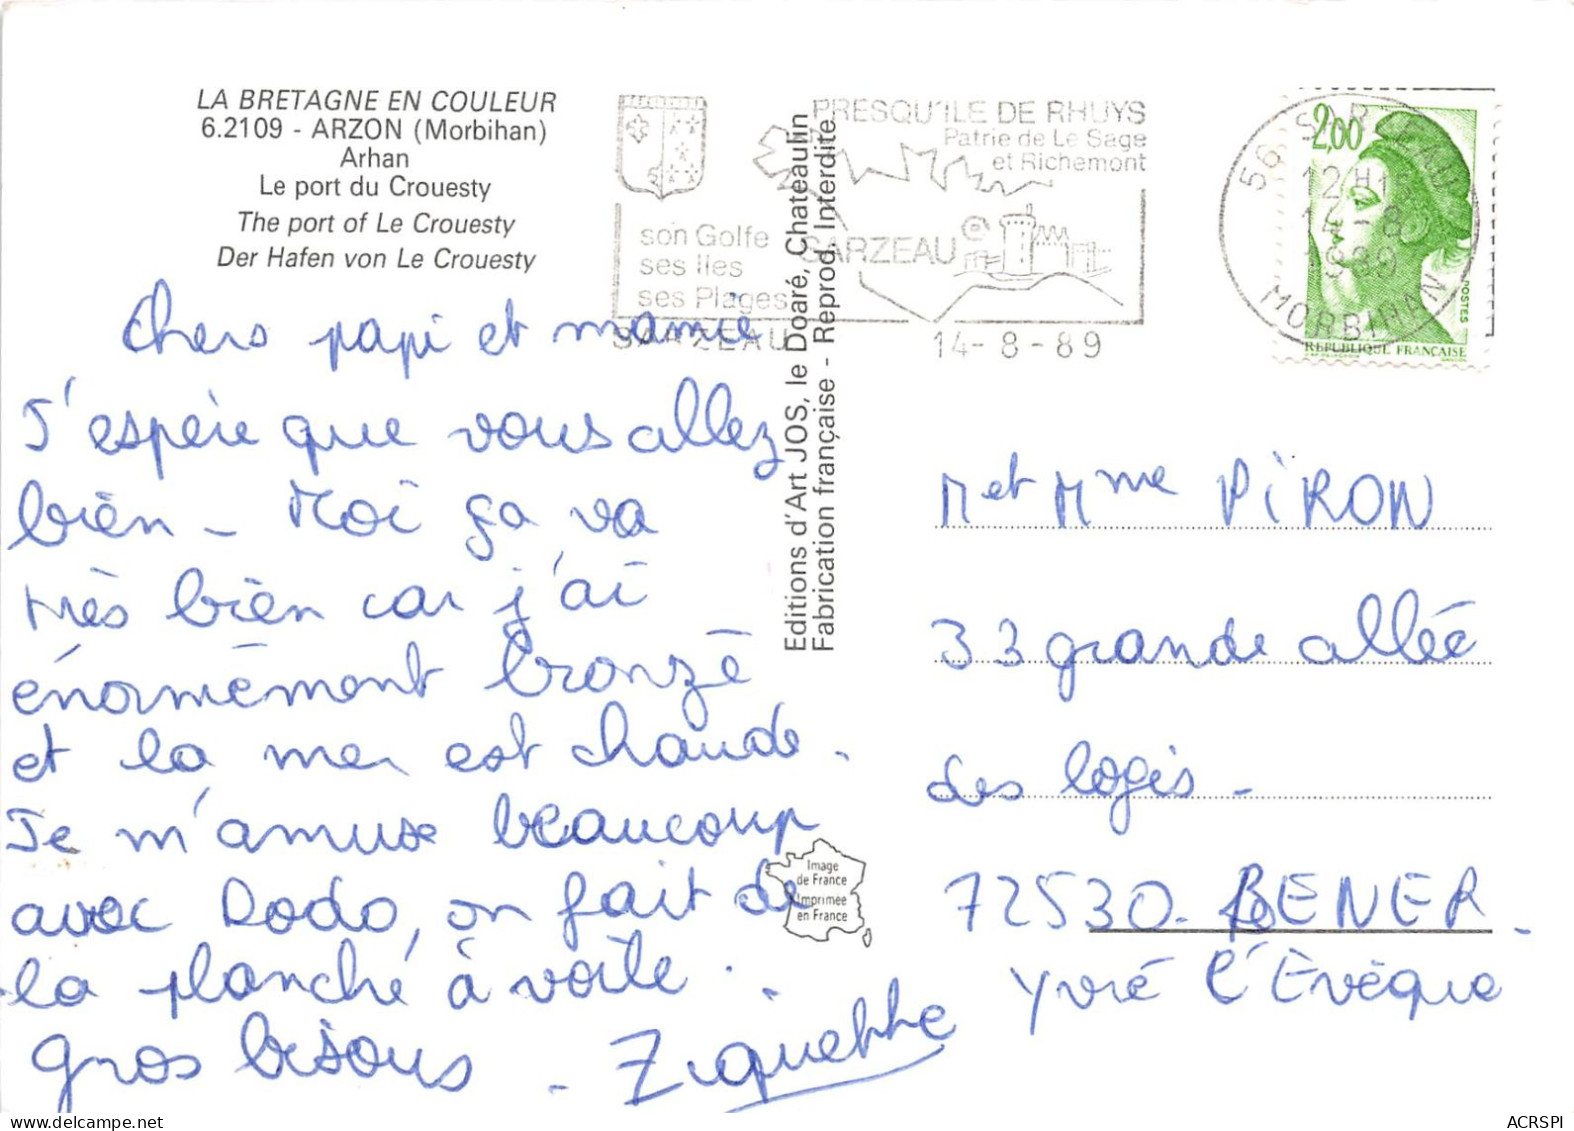 LA BRETAGNE EN COULEUR
6.2109 - ARZON (Morbihan)
Arhan
Le port du Crouesty
The port of Le Crouesty
Der Hafen von Le Crouesty
Chers papi et mamie
J'espère que vous allez
bien - Moi ça va
très bien car j'ai
énormément bronzé
et la mer est chaude.
Je m'amuse beaucoup
avec Dodo, on fait de
la planche à voile.
gros bisous - Ziquette
Editions d'Art JOS, le Doaré, Chateaulin
Fabrication française - Reprod. Interdite.
Image
de France
Imprimée
en France
PRESQU'ILE DE RHUYS
Patrie de Le Sage
et Richemont
son Golfe
ses Iles
ses Plages
SARZEAU
SARZEAU
14-8-89
56 SARZEAU
12H
14-8
1989
MORBIHAN
2,00
POSTES
REPUBLIQUE FRANÇAISE
M et Mme PiRON
33 grande allée
des logis -
72530 - BENER -
Yvré l'Évêque
ACRSPI